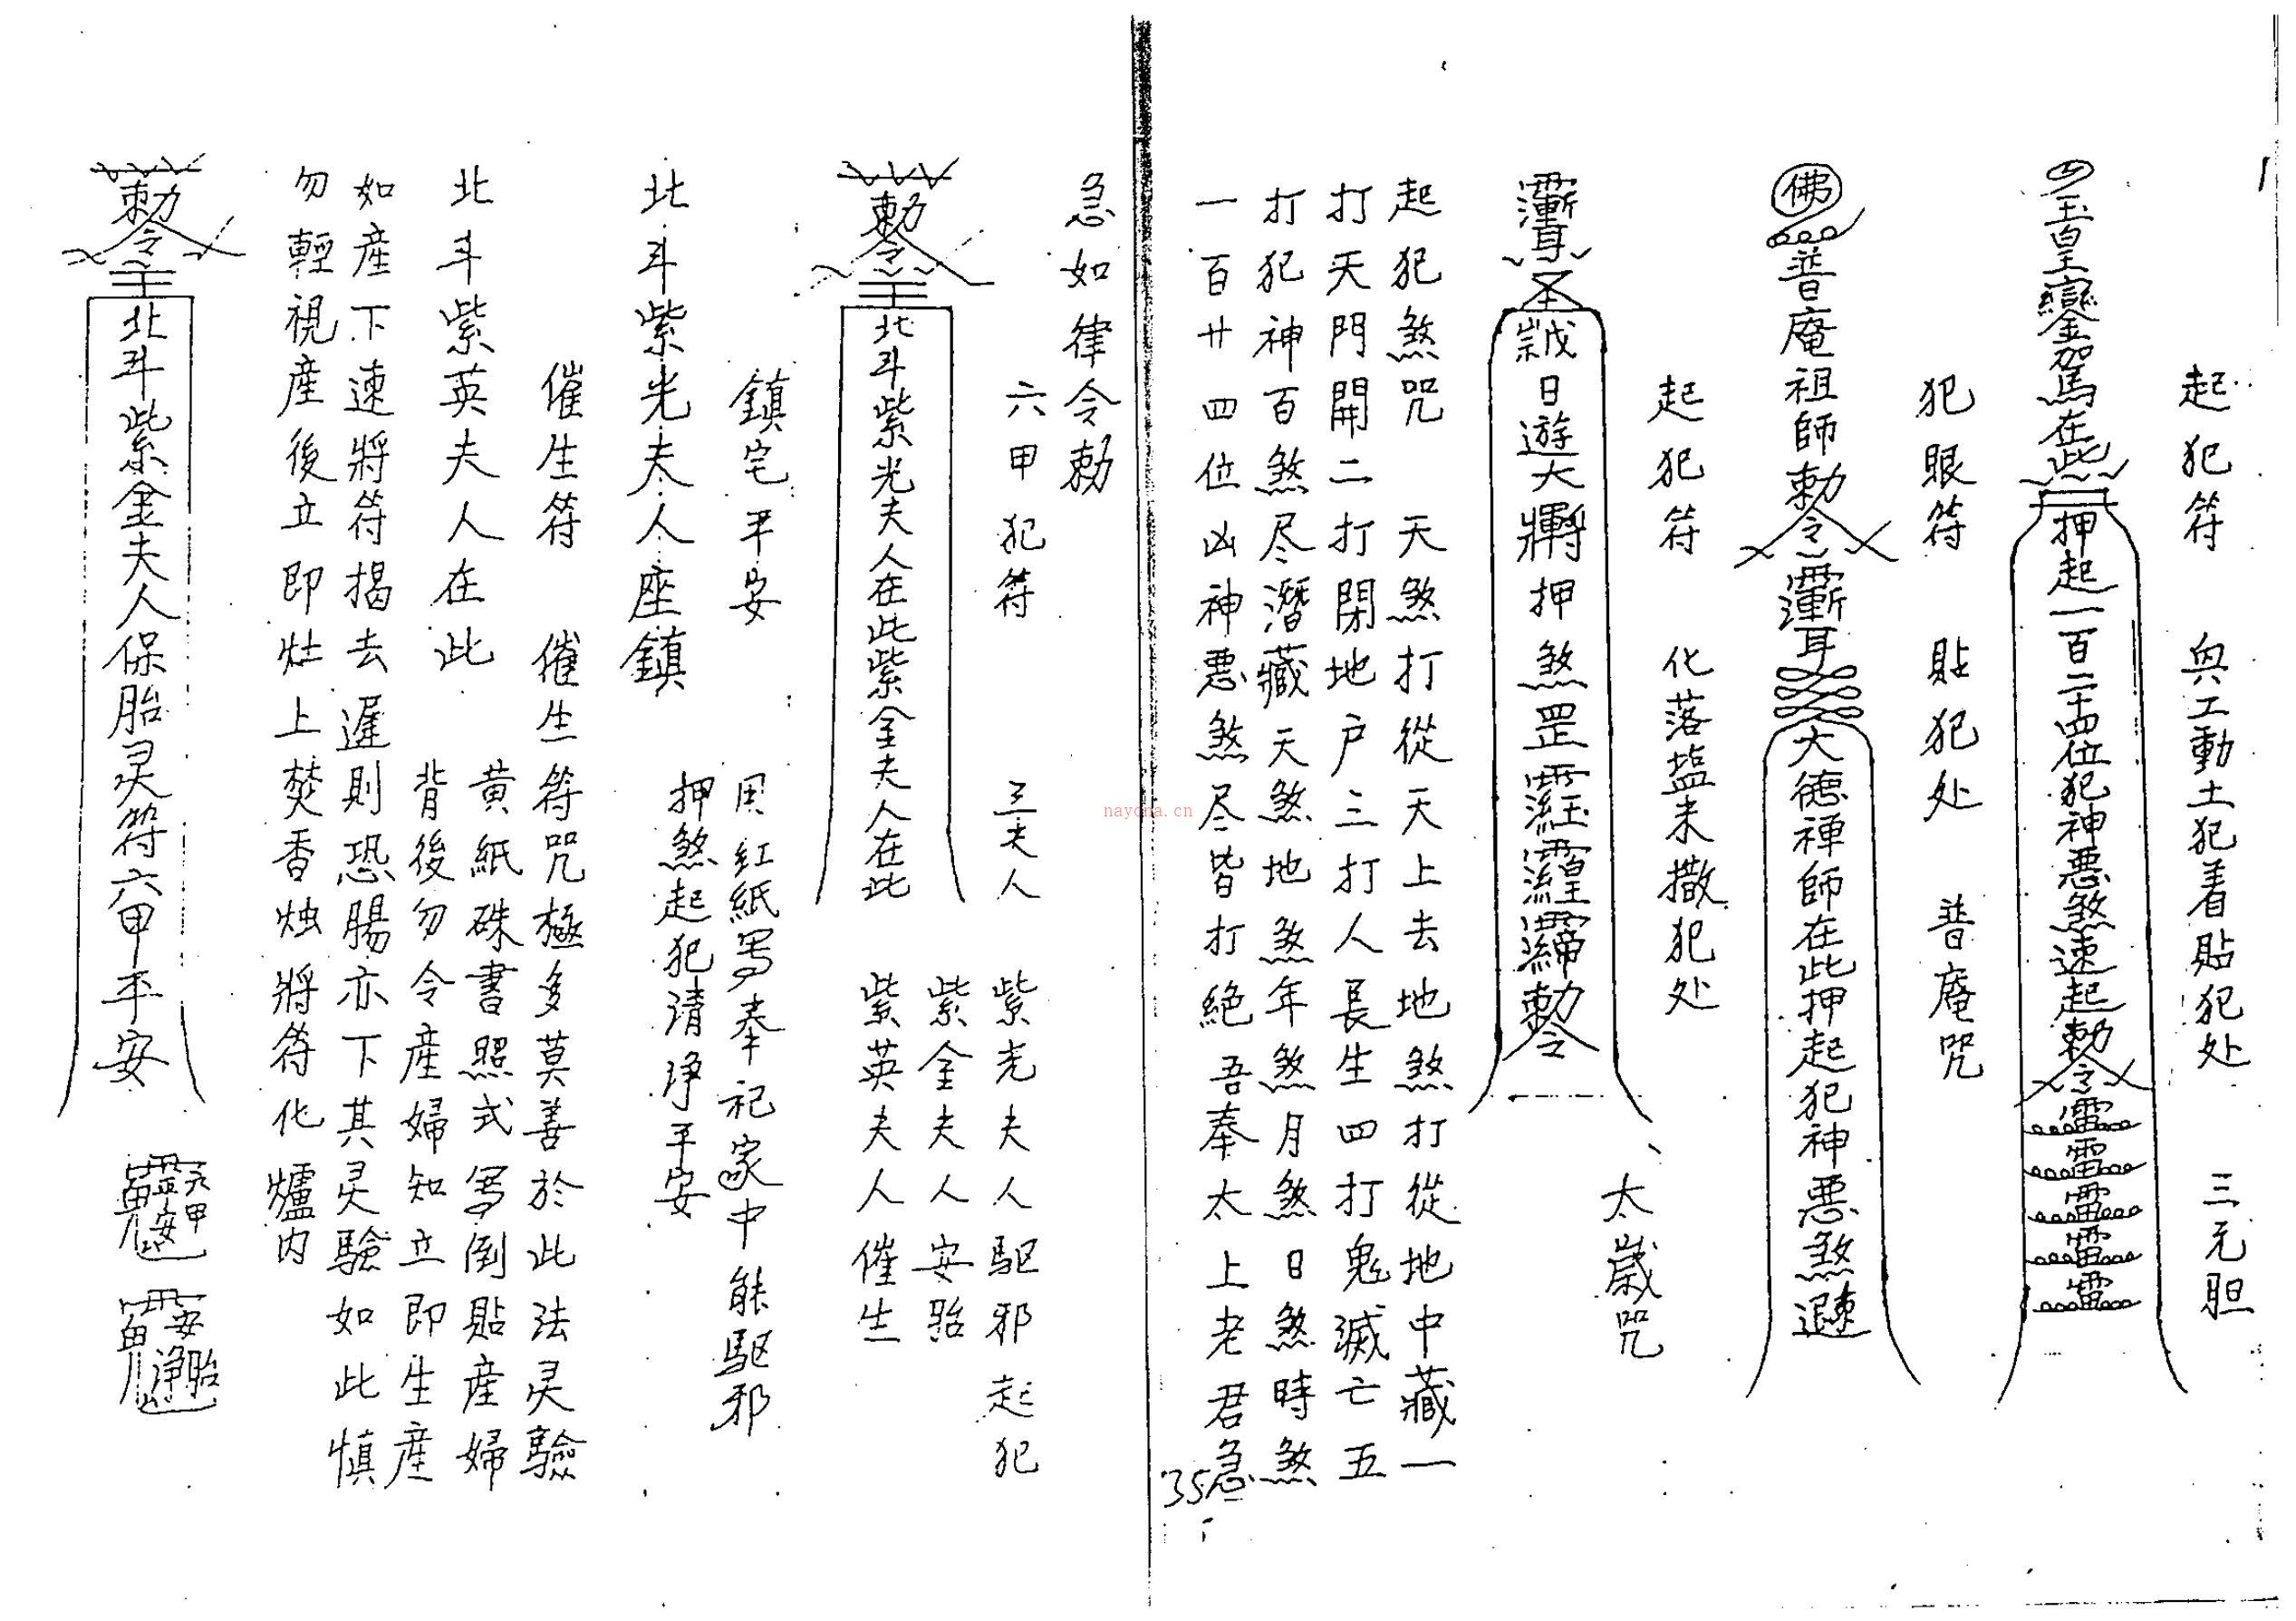 起犯符　與工動土犯着貼犯处　三元胆
玉皇鑾金駕在此押起一百二十四位犯神悪煞速起勅令雷雷雷雷雷
犯眼符　貼犯处　普庵咒
佛普庵祖師勅令　大德禅師在此押起犯神悪煞
起犯符　化落塩米撒犯处
太歲咒
日遊大將押煞罡　勅令
起犯煞咒　天煞打從天上去地煞打從地中藏一
打天門開二打閉地户三打人長生四打鬼滅亡五
打犯神百煞尽潛藏天煞地煞年煞月煞日煞時煞
一百廿四位凶神悪煞尽皆打絶吾奉太上老君急
35
急如律令勅
六甲犯符　三夫人　紫光夫人駆邪起犯
紫金夫人安胎
紫英夫人催生
勅令北斗紫光夫人在此紫金夫人在此
鎮宅平安　用紅紙写奉祀家中能駆邪
押煞起犯清净平安
北斗紫光夫人座鎮
催生符　催生符咒極多莫善於此法灵驗
黄紙硃書照式写倒貼産婦
北斗紫英夫人在此　背後勿令産婦知立即生産
如産下速將符揭去遲則恐腸亦下其灵驗如此慎
勿輕視産後立即灶上焚香烛將符化爐内
勅令北斗紫金夫人保胎灵符六甲平安
nayona.cn